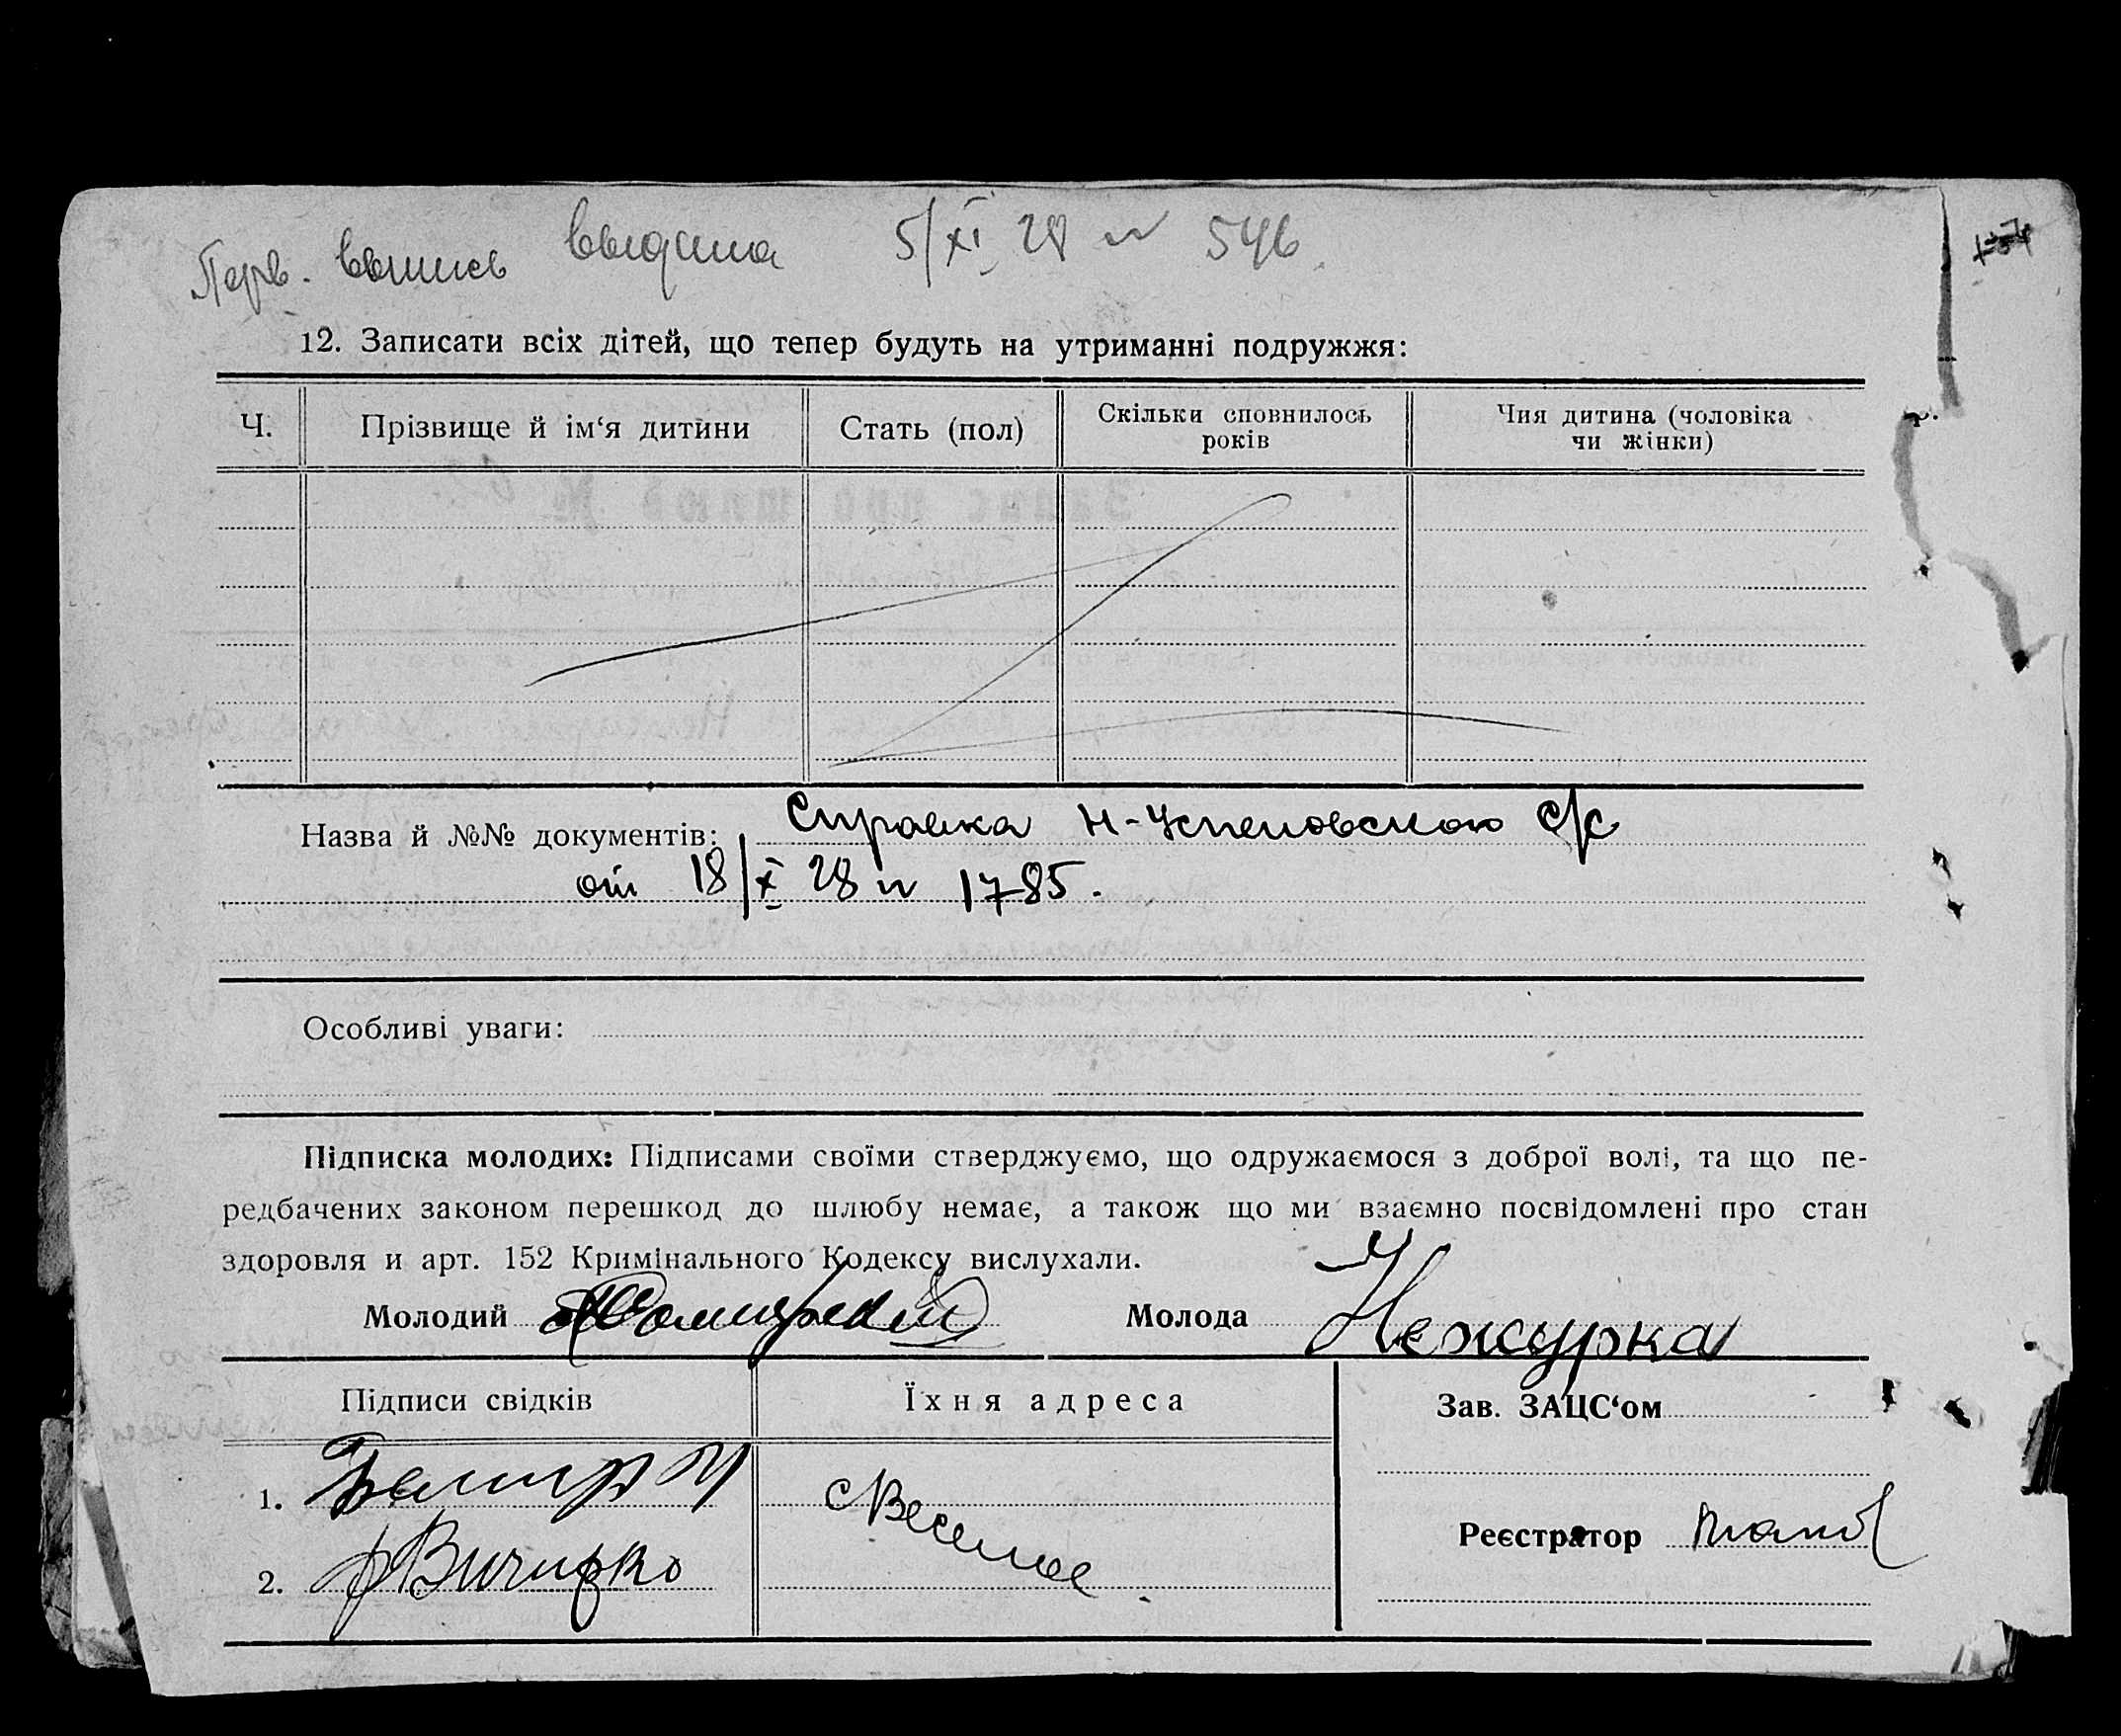 Перв. выпись выдана 5/XI 28 № 546.
12. Записати всіх дітей, що тепер будуть на утриманні подружжя:
Ч. Прізвище й ім‘я дитини Стать (пол) Скільки сповнилось років Чия дитина (чоловіка чи жінки)
Назва й №№ документів: Справка Н-Успеновского с/с
от 18/X 28 № 1785.
Особливі уваги:
Підписка молодих: Підписами своїми стверджуємо, що одружаємося з доброї волі, та що пе-
редбачених законом перешкод до шлюбу немає, а також що ми взаємно посвідомлені про стан
здоровля и арт. 152 Кримінального Кодексу вислухали.
Молодий Молода Нежурка
Підписи свідків Їхня адреса Зав. ЗАЦС‘ом
1. с Веселое
2. Реєстратор